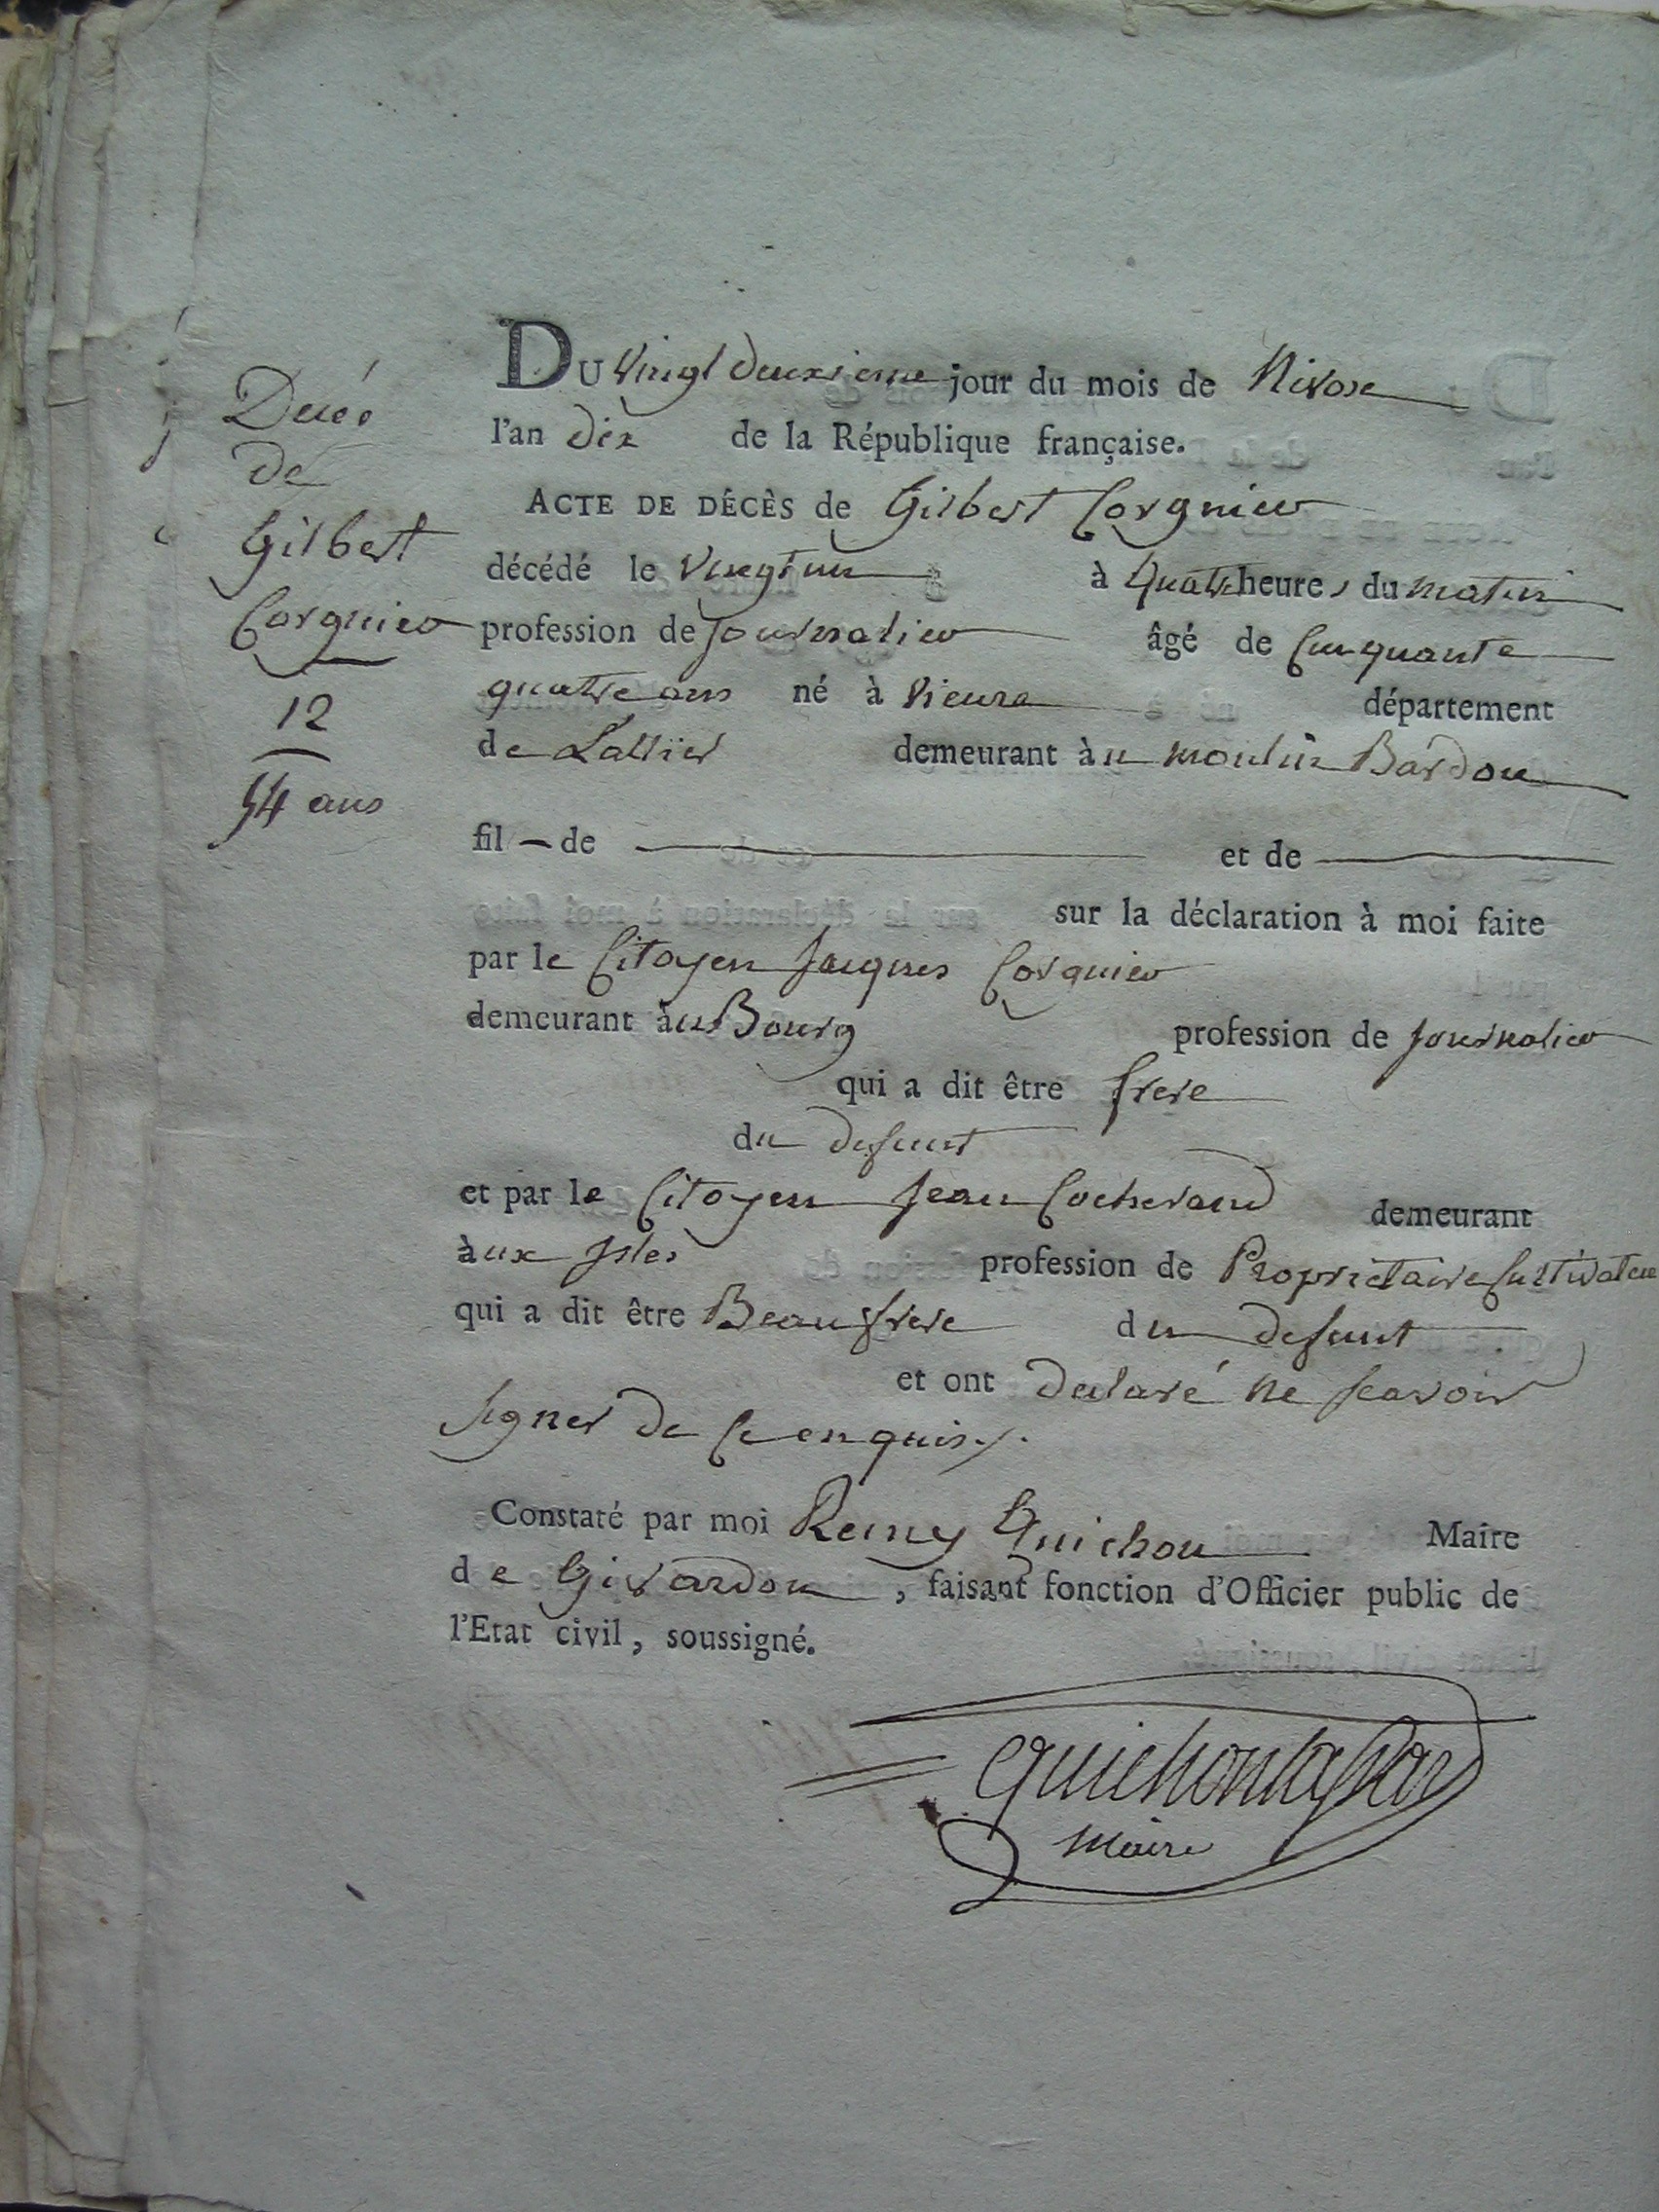 Décé
de
Gilbert
Corgnier
12
54 ans
DU Vingt deuxieme jour du mois de Nivose
l'an dix de la République française.
ACTE DE DÉCÈS de Gilbert Corgnier
décédé le Vingt un à Quatre heures du matin
profession de Journalier âgé de Cinquante
quatre ans né à Vieure département
de Lallier demeurant àu moulin Bardon
fil – de et de
sur la déclaration à moi faite
par le Citoyen Jacques Corgnier
demeurant àu Bourg profession de Journalier
qui a dit être frere
du defunt
et par le Citoyen Jean Cocherand demeurant
àux Isles profession de Proprietaire Cultivateur
qui a dit être Beaufrere du defunt
et ont declaré ne scavoir
signer de ce enquis
Constaté par moi Remy Guichon Maire
de Givardon, faisant fonction d'Officier public de
l'Etat civil, soussigné.
maire